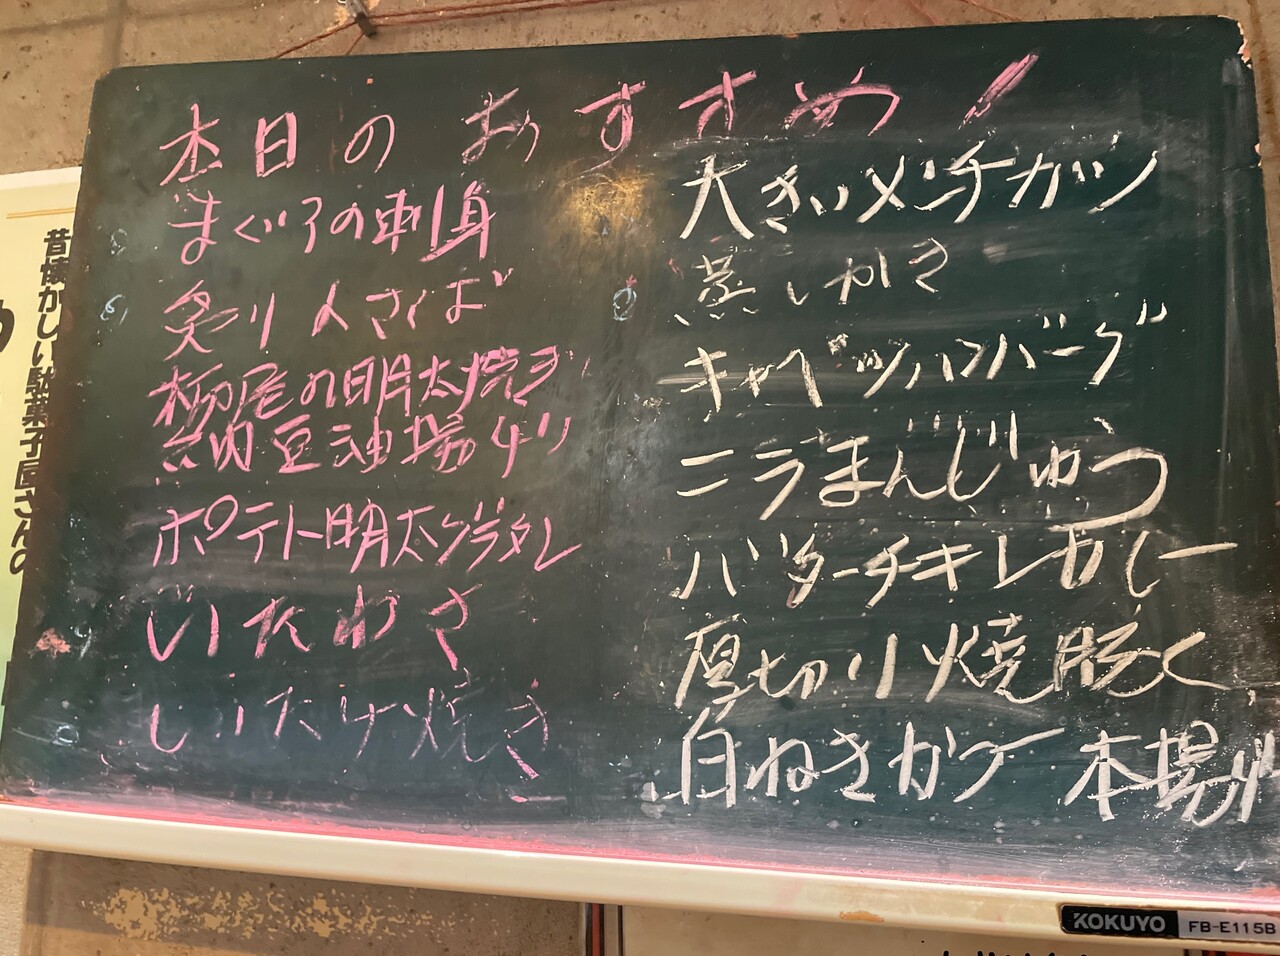 本日のおすすめ!
まぐろの刺身
炙りしめさば
栃尾の明太焼き
ポテト明太グラタン
いたわさ
しいたけ焼き
大きいメンチカツ
蒸しかき
キャベツハンバーグ
ニラまんじゅう
バターチキンカレー
厚切り焼豚
白ねぎ
本場
昔懐かしい駄菓子屋さんの
KOKUYO FB-E115B